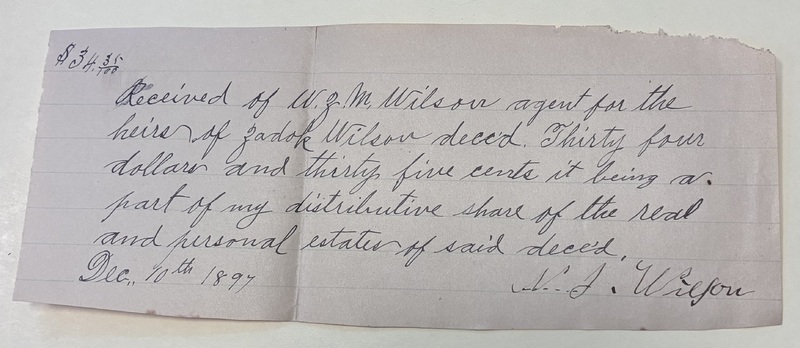 $34.35/100
Received of W.Z.M. Wilson agent for the
heirs of Zadok Wilson dece'd. Thirty four
dollars and thirty five cents it being a
part of my distributive share of the real
and personal estates of said dece'd.
Dec., 10th 1897
Wilson